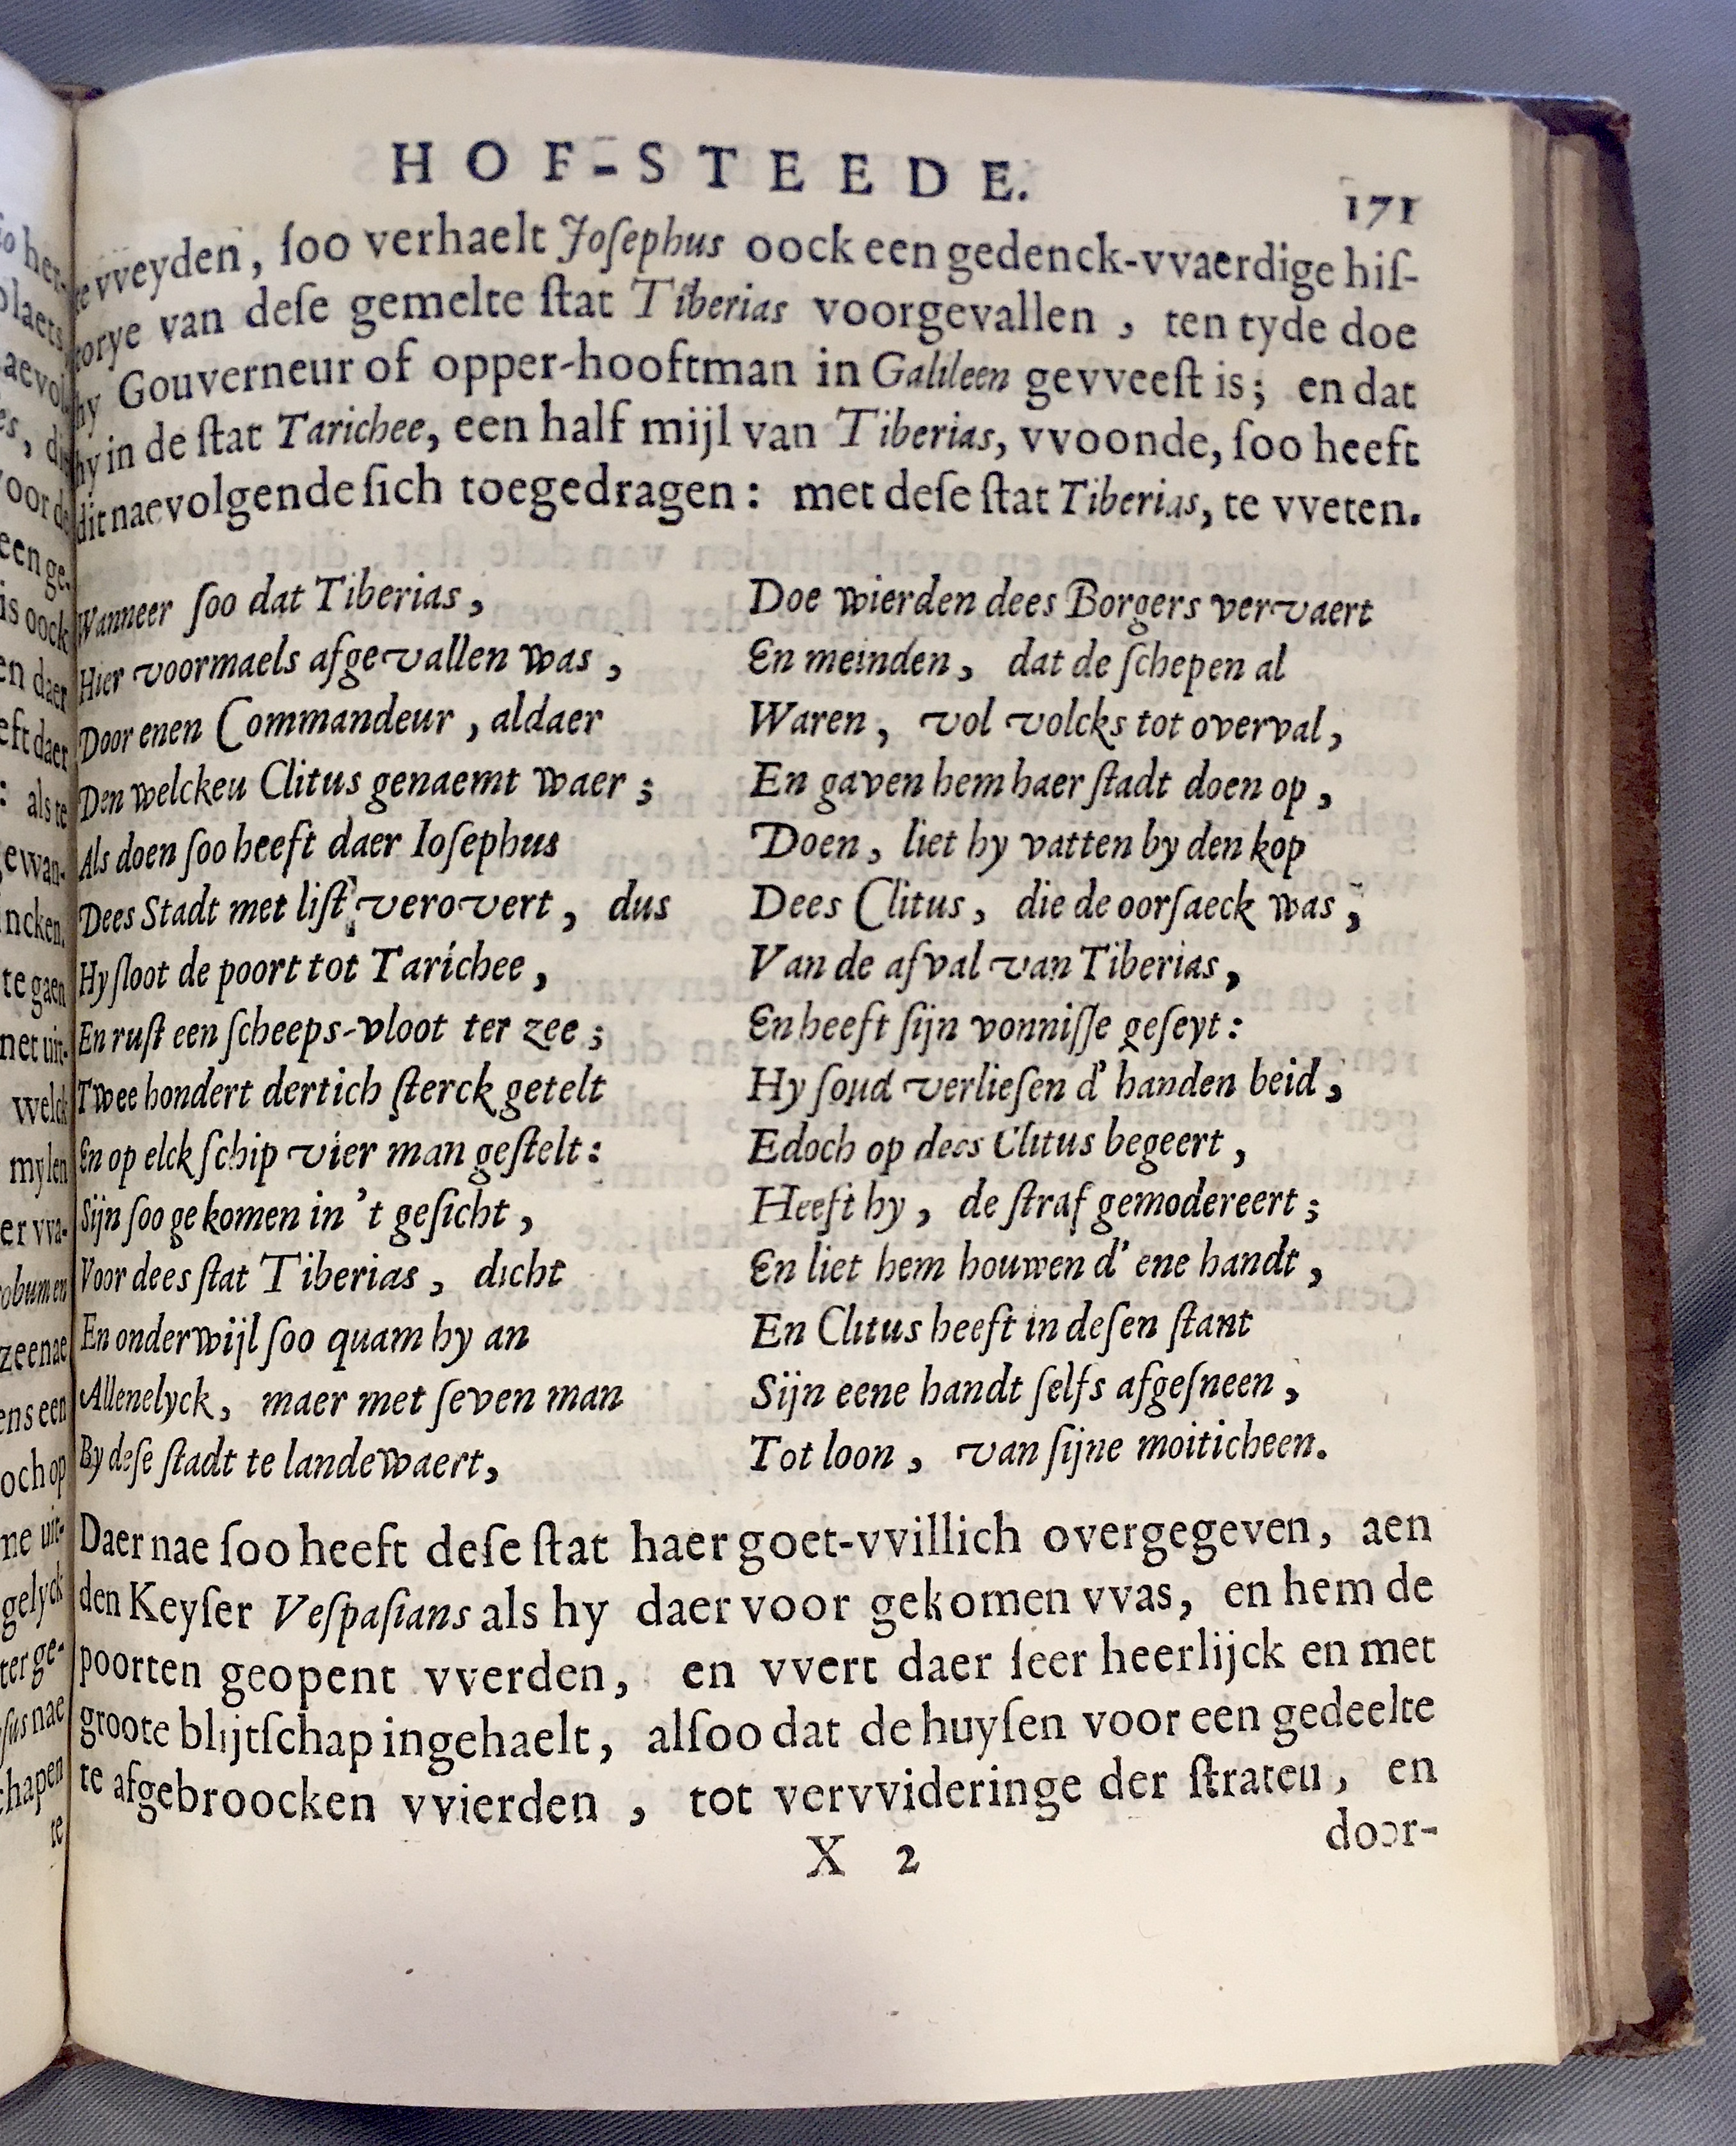 HOF-STEEDE.
171
te vveyden, ſoo verhaelt Joſephus oock een gedenck-vvaerdige hiſ-
torye van deſe gemelte ſtat Tiberias voorgevallen , ten tyde doe
hy Gouverneur of opper-hooftman in Galileen gevveeſt is; en dat
hy in de ſtat Tarichee, een half mijl van Tiberias, vvoonde, ſoo heeft
dit naevolgende ſich toegedragen: met deſe ſtat Tiberias, te vveten.
Wanneer ſoo dat Tiberias ,
Hier voormaels afgevallen was ,
Door enen Commandeur , aldaer
Den welckeu Clitus genaemt waer ;
Als doen ſoo heeft daer Ioſephus
Dees Stadt met liſt verovert , dus
Hy ſloot de poort tot Tarichee ,
En ruſt een ſcheeps-vloot ter zee ;
Twee hondert dertich ſterck getelt
En op elck ſchip vier man geſtelt :
Sijn ſoo gekomen in 't geſicht ,
Voor dees ſtat Tiberias , dicht
En onderwijl ſoo quam hy an
Allenelyck , maer met ſeven man
By deſe ſtadt te landewaert,
Doe wierden dees Borgers vervaert
En meinden , dat de ſchepen al
Waren , vol volcks tot overval ,
En gaven hem haer ſtadt doen op ,
Doen , liet hy vatten by den kop
Dees Clitus , die de oorſaeck was ;
Van de afval van Tiberias ,
En heeft ſijn vonniſſe geſeyt :
Hy ſoud verlieſen d' handen beid ,
Edoch op dees Clitus begeert ,
Heeft hy , de ſtraf gemodereert ;
En liet hem houwen d' ene handt ,
En Clitus heeft in deſen ſtant
Sijn eene handt ſelfs afgeſneen ,
Tot loon , van ſijne moiticheen.
Daer nae ſoo heeft deſe ſtat haer goet-vvillich overgegeven, aen
den Keyſer Veſpaſians als hy daer voor gekomen vvas, en hem de
poorten geopent vverden, en vvert daer ſeer heerlijck en met
groote blijtſchap ingehaelt, alſoo dat de huyſen voor een gedeelte
te afgebroocken vvierden , tot vervvideringe der ſtrateu, en
X 2
door-